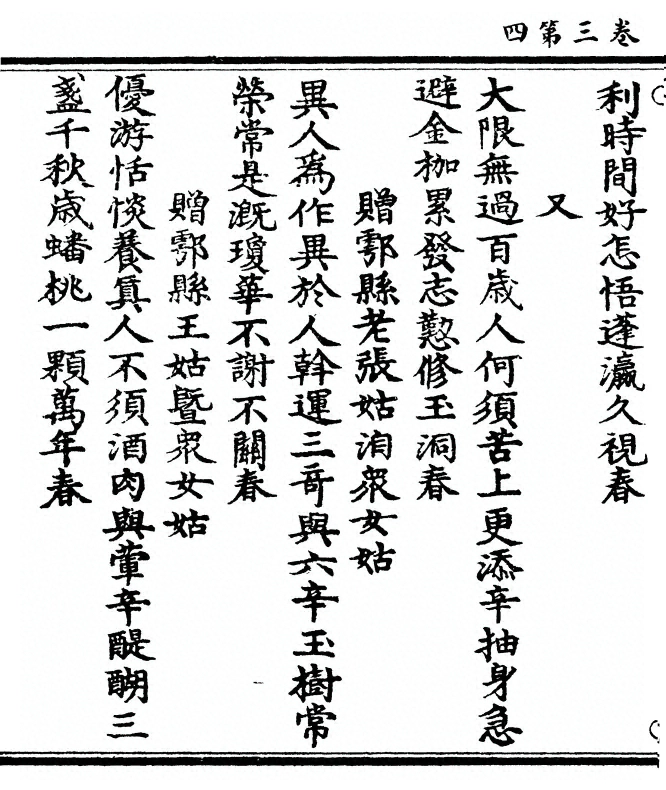 四第三卷
利時間好怎悟蓬瀛久視春
又
大限無過百歲人何須苦上更添辛抽身急
避金枷累發志懃修玉洞春
贈鄠縣老張姑洎衆女姑
異人爲作異於人幹運三哥與六辛玉樹常
榮常是漑瓊華不謝不關春
贈鄠縣王姑曁衆女姑
優游恬惔養眞人不須酒肉與葷辛醍醐三
盞千秋歲蟠桃一顆萬年春